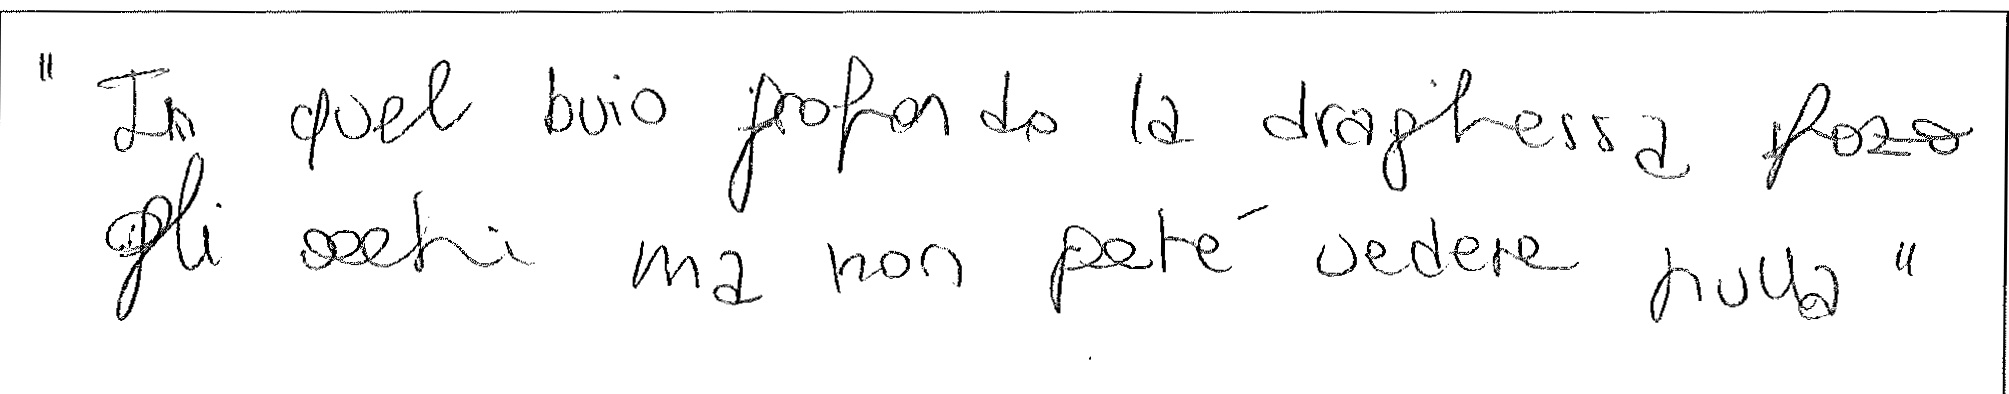 " In quel buio profondo la draghessa posò
gli occhi ma non poté vedere nulla "